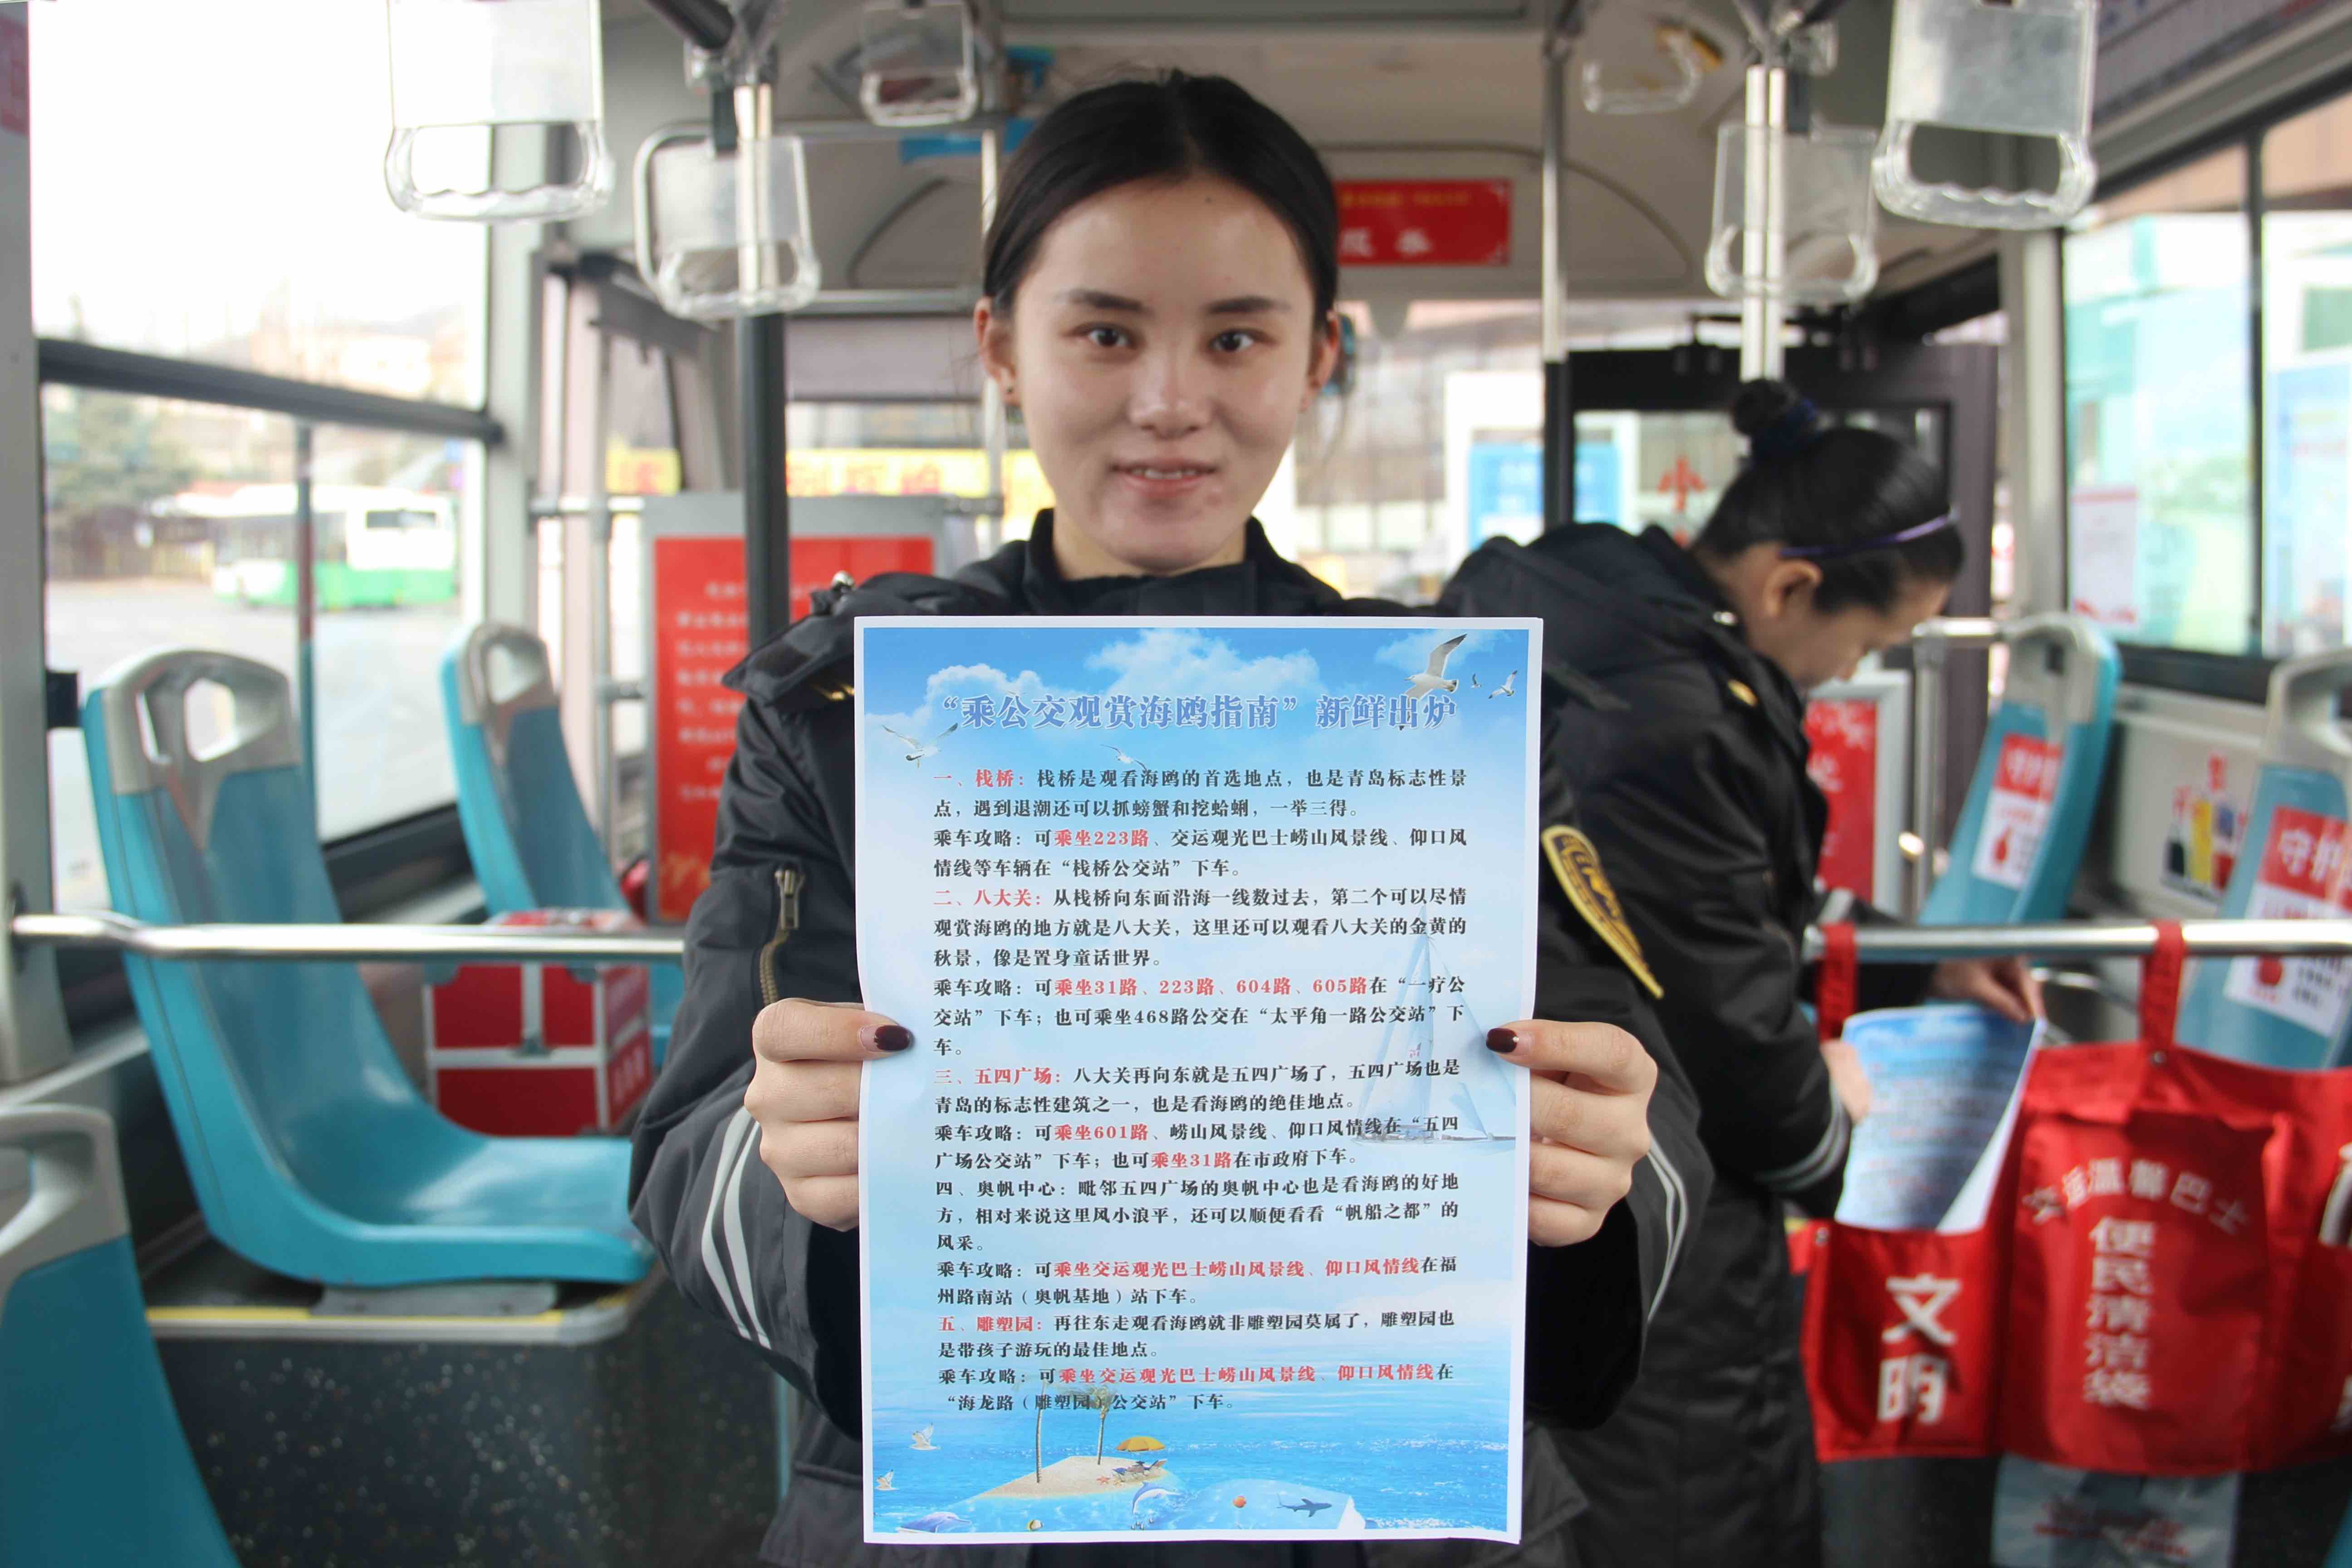 “乘公交观赏海鸥指南”新鲜出炉
一、栈桥：栈桥是观看海鸥的首选地点，也是青岛标志性景
点，遇到退潮还可以抓螃蟹和挖蛤蜊，一举三得。
乘车攻略：可乘坐223路、交运观光巴士崂山风景线、仰口风
情线等车辆在“栈桥公交站”下车。
二、八大关：从栈桥向东面沿海一线数过去，第二个可以尽情
观赏海鸥的地方就是八大关，这里还可以观看八大关的金黄的
秋景，像是置身童话世界。
乘车攻略：可乘坐31路、223路、604路、605路在“一疗公
交站”下车；也可乘坐468路公交在“太平角一路公交站”下
车。
三、五四广场：八大关再向东就是五四广场了，五四广场也是
青岛的标志性建筑之一，也是看海鸥的绝佳地点。
乘车攻略：可乘坐601路、崂山风景线、仰口风情线在“五四
广场公交站”下车；也可乘坐31路在市政府下车。
四、奥帆中心：毗邻五四广场的奥帆中心也是看海鸥的好地
方，相对来说这里风小浪平，还可以顺便看看“帆船之都”的
风采。
乘车攻略：可乘坐交运观光巴士崂山风景线、仰口风情线在福
州路南站（奥帆基地）站下车。
五、雕塑园：再往东走观看海鸥就非雕塑园莫属了，雕塑园也
是带孩子游玩的最佳地点。
乘车攻略：可乘坐交运观光巴士崂山风景线、仰口风情线在
“海龙路（雕塑园）公交站”下车。
小
守护
守护
交运温馨巴士
便民清洁袋
文明